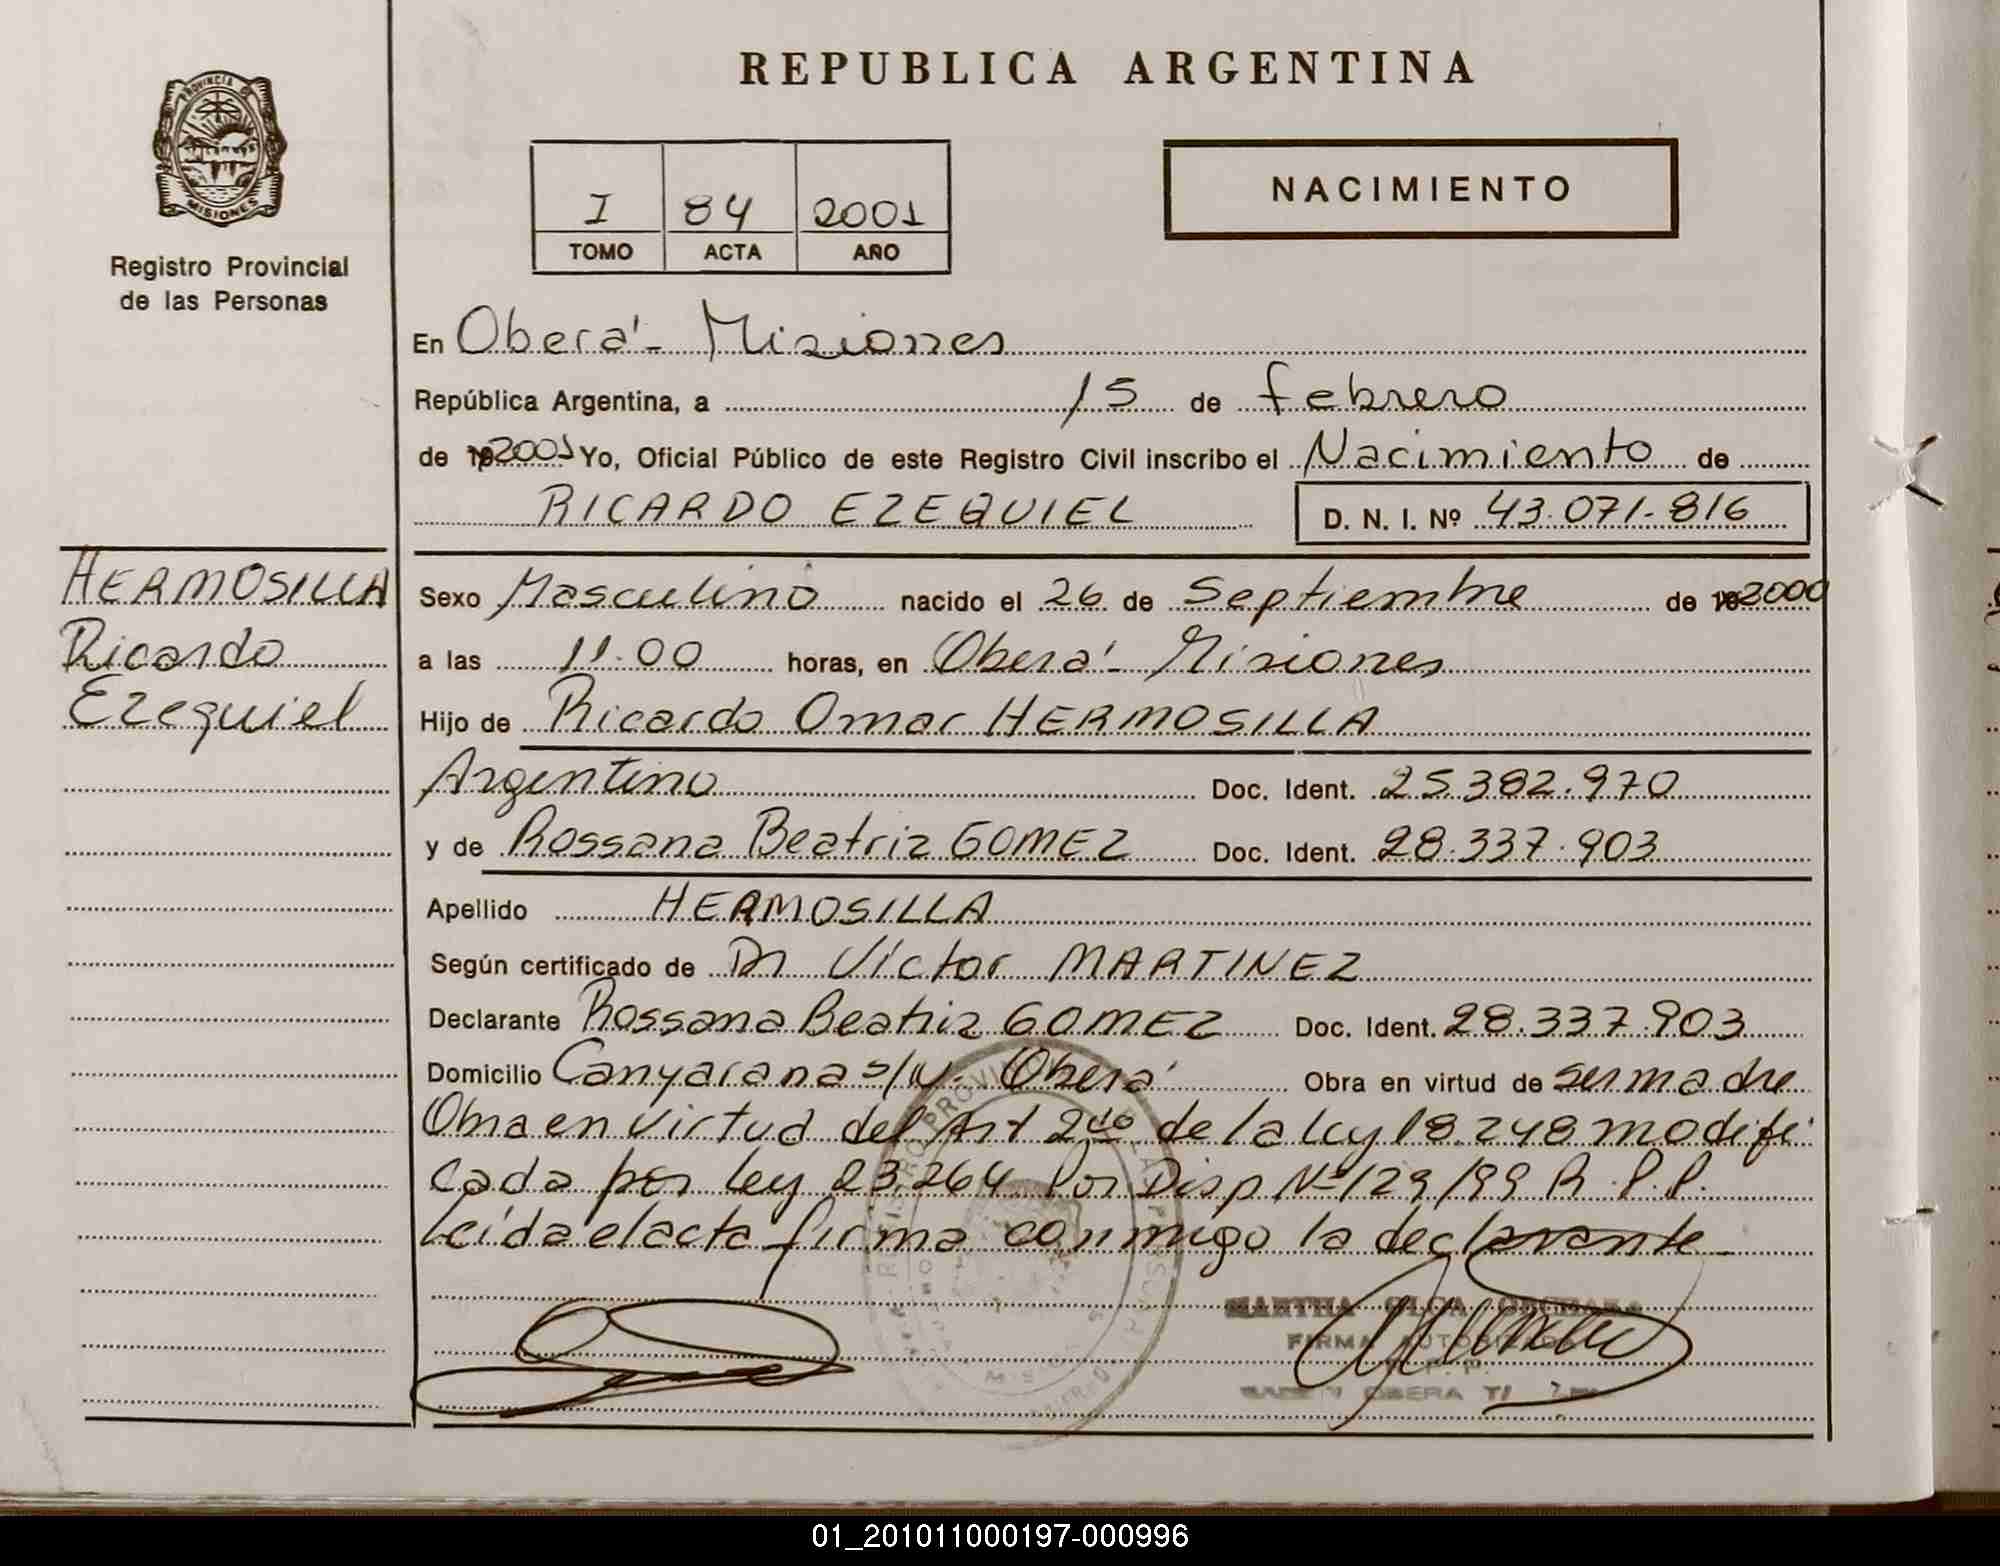 REPUBLICA ARGENTINA
PROVINCIA DE
MISIONES
Registro Provincial
de las Personas
I 84 2001
TOMO ACTA AÑO
NACIMIENTO
En Oberá - Misiones
República Argentina, a 15 de febrero
de 192001 Yo, Oficial Público de este Registro Civil inscribo el Nacimiento de
RICARDO EZEQUIEL D. N. I. Nº 43.071.816
HERMOSILLA
Ricardo
Ezequiel
Sexo Masculino nacido el 26 de Septiembre de 192000
a las 11.00 horas, en Oberá - Misiones
Hijo de Ricardo Omar HERMOSILLA
Argentino Doc. Ident. 25.382.970
y de Rossana Beatriz GOMEZ Doc. Ident. 28.337.903
Apellido HERMOSILLA
Según certificado de Dr Víctor MARTINEZ
Declarante Rossana Beatriz GOMEZ Doc. Ident. 28.337.903
Domicilio Canyarana s/n. Oberá Obra en virtud de ser madre
Obra en virtud del Art 2do de la ley 18.248 modifi
cada por ley 23.264 Por Disp Nº 129/99 R.P.P.
Leída el acta firma conmigo la declarante
MARTHA OLGA
FIRMA AUTORIZADA
OBERA
01_201011000197-000996